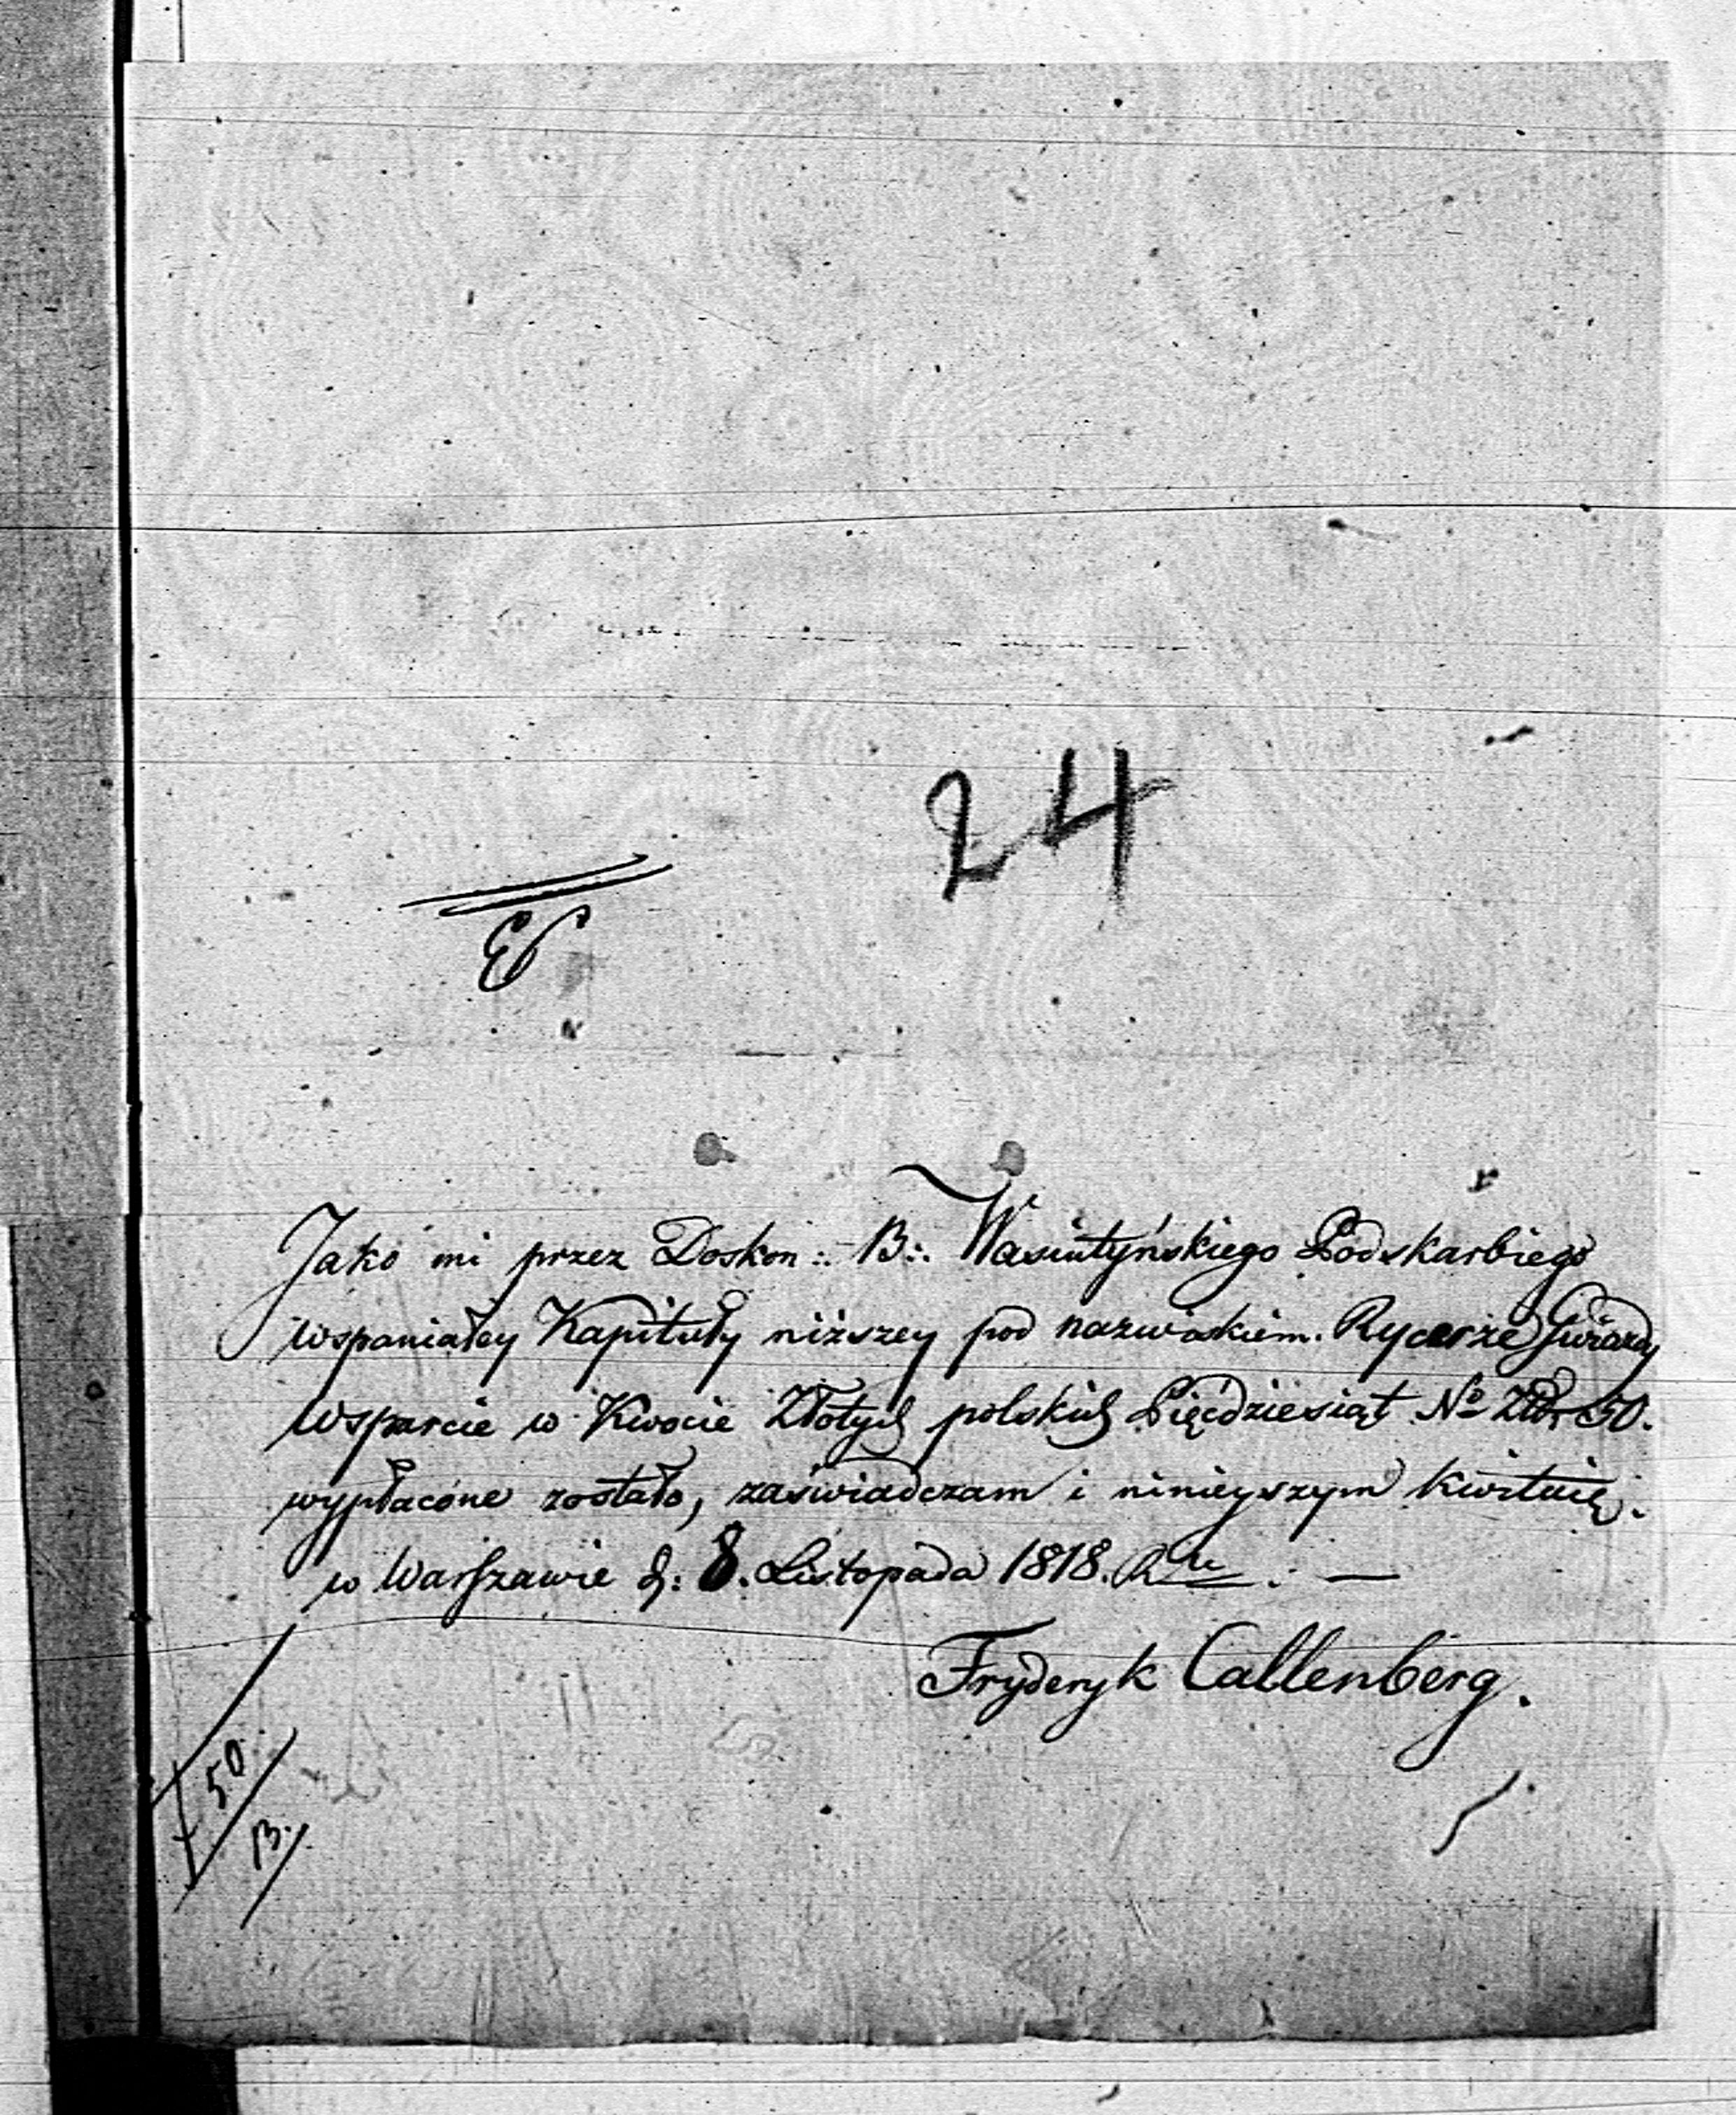 24
Jako mi przez Doskon:. B:. Wasiutyńskiego Podskarbiego
wspaniałey Kapituły niższey pod nazwiskiem. Rycerze Gwiazdy
wsparcie w Kwocie Złotych polskich Pięćdziesiąt No Złp 50.
wypłacone zostało, zaświadczam i ninieyszym kwituię.
w Warszawie d: 8. Listopada 1818. Rku . —
Fryderyk Callenberg.
50
B.